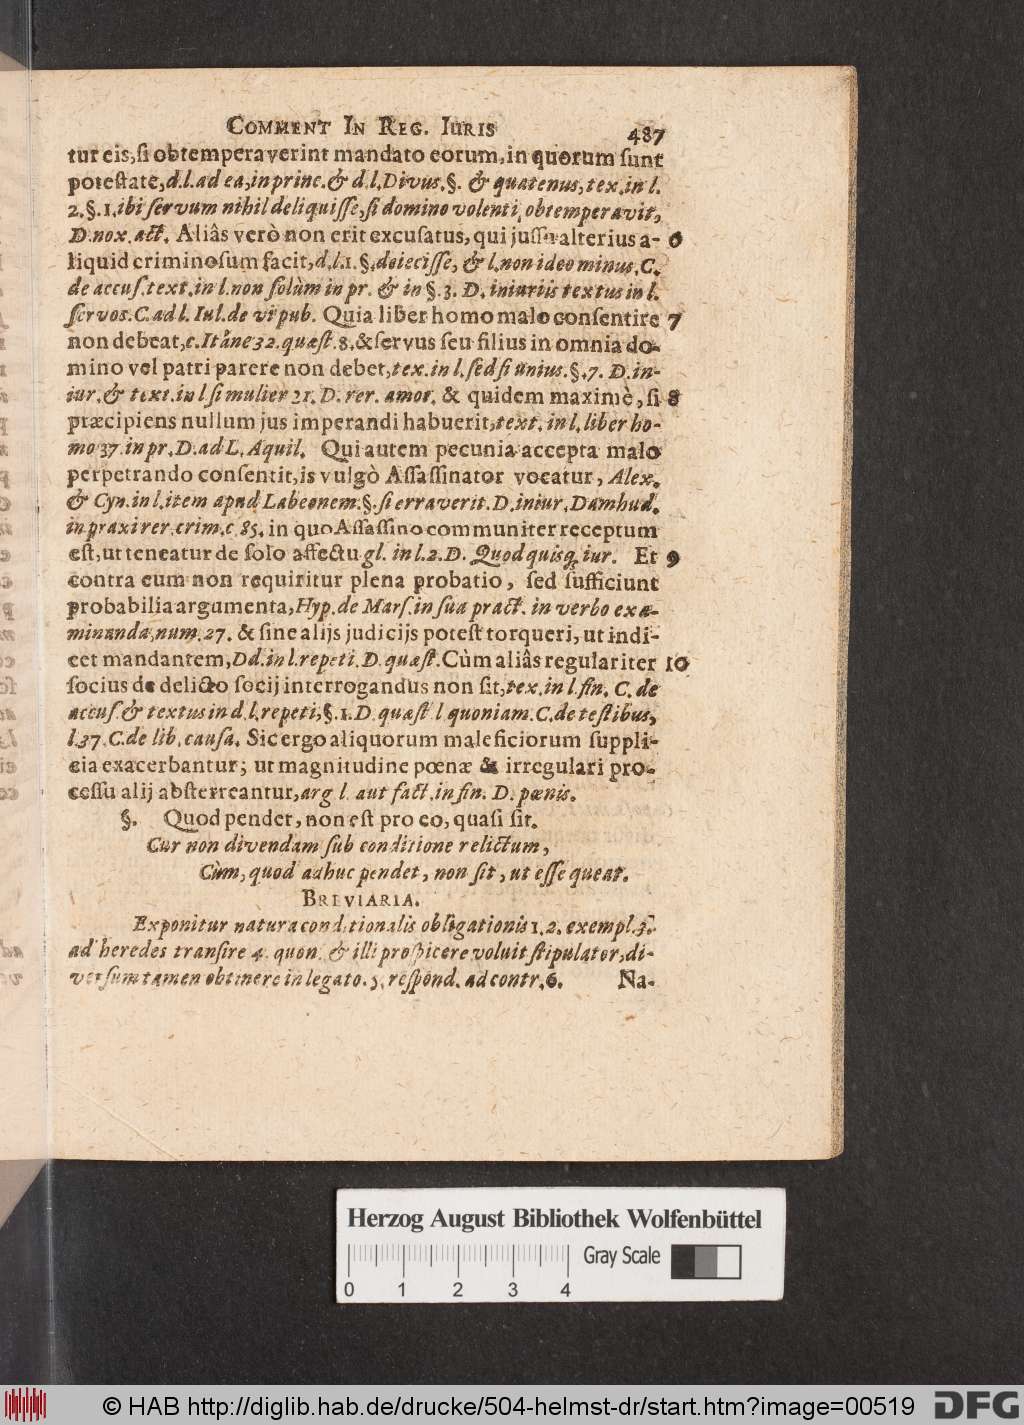 COMMENT IN REG. IURIS 487
tur eis, si obtemperaverint mandato eorum, in quorum sunt
potestate, d.l. ad ea, in princ. & d.l. Divus. §. & quatenus, tex. in l.
2. §. 1. ibi servum nihil deliquisse, si domino volenti obtemperavit,
D. nox. act. Aliâs verò non erit excusatus, qui jussu alterius a- 6
liquid criminosum facit, d.l.1. §. deiecisse, & l. non ideo minus. C.
de accus. text. in l. non solùm in pr. & in §. 3. D. iniuriis textus in l.
servos. C. ad l. Iul. de vi pub. Quia liber homo malo consentire 7
non debeat, c. Ita ne 32. quæst. 8. & servus seu filius in omnia do-
mino vel patri parere non debet, tex. in l. sed si unius. §. 7. D. in-
iur. & text. in l si mulier 21. D. rer. amor. & quidem maximè, si 8
præcipiens nullum jus imperandi habuerit, text. in l. liber ho-
mo 37. in pr. D. ad L. Aquil. Qui autem pecunia accepta malo
perpetrando consentit, is vulgò Assassinator vocatur, Alex.
& Cyn. in l. item apud Labeonem. §. si erraverit. D. iniur. Damhud.
in praxi rer. crim. c 85. in quo Assassino communiter receptum
est, ut teneatur de solo affectu gl. in l. 2. D. Quod quisq; iur. Et 9
contra eum non requiritur plena probatio, sed sufficiunt
probabilia argumenta, Hyp. de Mars. in sua pract. in verbo exa-
minanda, num. 27. & sine alijs judicijs potest torqueri, ut indi-
cet mandantem, Dd. in l. repeti. D. quæst. Cùm aliâs regulariter 10
socius de delicto socij interrogandus non sit, tex. in l. fin. C. de
accus. & textus in d. l. repeti, §. 1. D. quæst l quoniam. C. de testibus,
l. 37. C. de lib. causa. Sic ergo aliquorum maleficiorum suppli-
cia exacerbantur; ut magnitudine pœnæ & irregulari pro-
cessu alij absterreantur, arg l. aut fact. in fin. D. pœnis.
§. Quod pendet, non est pro eo, quasi sit.
Cur non divendam sub conditione relictum,
Cùm, quod adhuc pendet, non sit, ut esse queat.
BREVIARIA.
Exponitur natura conditionalis obligationis 1. 2. exempl. 3.
ad heredes transire 4. quon. & illi prospicere voluit stipulator, di-
versum tamen obtinere in legato. 5. respond. ad contr. 6. Na-
Herzog August Bibliothek Wolfenbüttel
Gray Scale
0 1 2 3 4
© HAB http://diglib.hab.de/drucke/504-helmst-dr/start.htm?image=00519 DFG